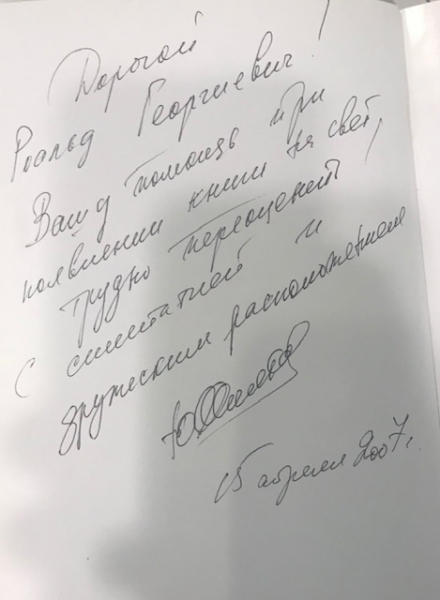 Дорогой
Роальд Георгиевич!
Вашу помощь при
появлении книги на свет,
трудно переоценить!
С симпатией и
дружеским расположением
15 апреля 2007г.